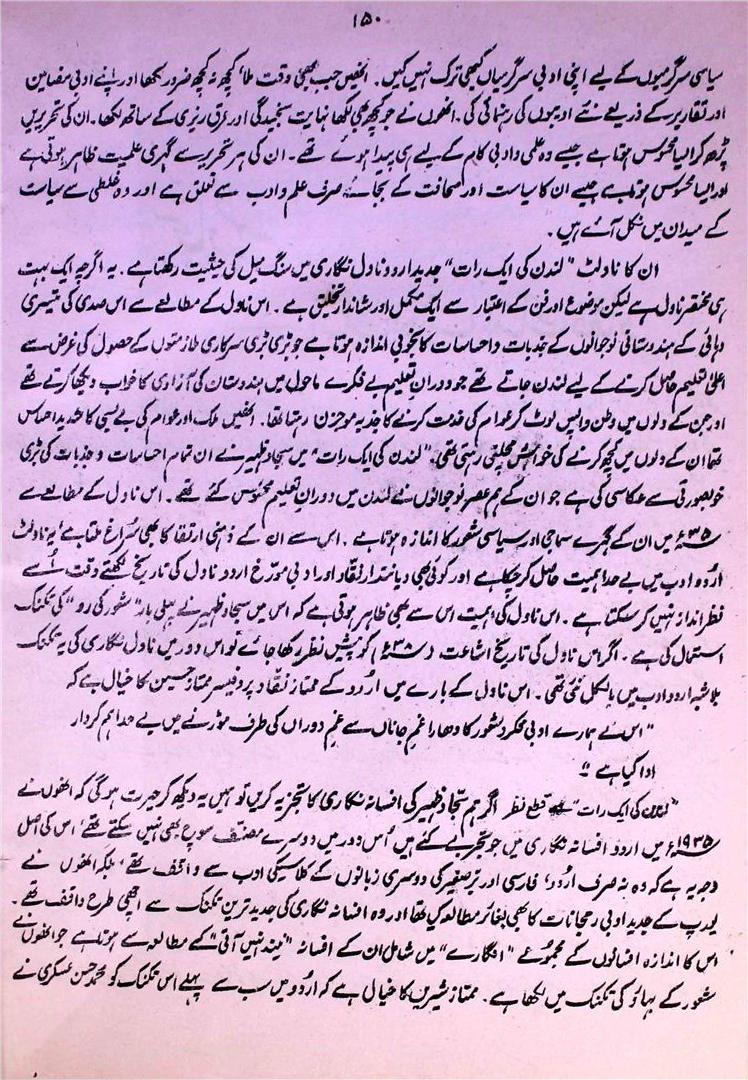 ۱۵۰
سیاسی سرگرمیوں کے لیے اپنی ادبی سرگرمیاں کبھی ترک نہیں کیں۔ انھیں جب بھی وقت ملا کچھ نہ کچھ ضرور لکھا اور اپنے ادبی مضامین
اور تقاریر کے ذریعے نئے ادیبوں کی رہنمائی کی۔ انھوں نے جو کچھ بھی لکھا نہایت سنجیدگی اور عرق ریزی کے ساتھ لکھا۔ ان کی تحریریں
پڑھ کر ایسا محسوس ہوتا ہے جیسے وہ علمی و ادبی کام کے لیے ہی پیدا ہوئے تھے۔ ان کی ہر تحریر سے گہری علمیت ظاہر ہوتی ہے
اور ایسا محسوس ہوتا ہے جیسے ان کا سیاست اور صحافت کے بجائے صرف علم و ادب سے تعلق ہے اور وہ غلطی سے سیاست
کے میدان میں نکل آئے ہیں۔
ان کا ناولٹ "لندن کی ایک رات" جدید اردو ناول نگاری میں سنگ میل کی حیثیت رکھتا ہے۔ یہ اگرچہ ایک بہت
ہی مختصر ناول ہے لیکن موضوع اور فن کے اعتبار سے ایک مکمل اور شاندار تخلیق ہے۔ اس ناول کے مطالعے سے اس صدی کی تیسری
دہائی کے ہندوستانی نوجوانوں کے جذبات و احساسات کا بخوبی اندازہ ہوتا ہے جو بڑی بڑی سرکاری ملازمتوں کے حصول کی غرض سے
اعلیٰ تعلیم حاصل کرنے کے لیے لندن جاتے تھے جو دورانِ تعلیم بے فکرے ماحول میں ہندوستان کی آزادی کا خواب دیکھا کرتے تھے
اور جن کے دلوں میں وطن واپس لوٹ کر عوام کی خدمت کرنے کا جذبہ موجزن رہتا تھا۔ انھیں ملک اور عوام کی بے بسی کا شدید احساس
تھا ان کے دلوں میں کچھ کرنے کی خواہش مچلتی رہتی تھی۔ "لندن کی ایک رات" میں سجاد ظہیر نے ان تمام احساسات و جذبات کی بڑی
خوبصورتی سے عکاسی کی ہے جو ان کے ہم عصر نوجوانوں نے لندن میں دورانِ تعلیم محسوس کئے تھے۔ اس ناول کے مطالعے سے
۳۵ء میں ان کے گہرے سماجی اور سیاسی شعور کا اندازہ ہوتا ہے۔ اس سے ان کے ذہنی ارتقا کا بھی سُراغ ملتا ہے، یہ ناولٹ
اردو ادب میں بے حد اہمیت حاصل کر چکا ہے اور کوئی بھی دیانتدار نقاد اور ادبی مورّخ اردو ناول کی تاریخ لکھتے وقت اُسے
نظر انداز نہیں کر سکتا ہے۔ اس ناول کی اہمیت اس سے بھی ظاہر ہوتی ہے کہ اس میں سجاد ظہیر نے پہلی بار "شعور کی رو" کی تکنک
استعمال کی ہے۔ اگر اس ناول کی تاریخ اشاعت (۳۸ء) کو پیش نظر رکھا جائے تو اس دور میں ناول نگاری کی یہ تکنک
بلاشبہ اردو ادب میں بالکل نئی تھی۔ اس ناول کے بارے میں اُردو کے ممتاز نقّاد پروفیسر ممتاز حسین کا خیال ہے کہ
"اس نے ہمارے ادبی فکر و شعور کا دھارا غمِ جاناں سے غمِ دوراں کی طرف موڑنے میں بے حد اہم کردار
ادا کیا ہے"
"لندن کی ایک رات" سے قطع نظر اگر ہم سجّاد ظہیر کی افسانہ نگاری کا تجزیہ کریں تو ہمیں یہ دیکھ کر حیرت ہوگی کہ انھوں نے
۱۹۳۵ء میں اردو افسانہ نگاری میں جو تجربے کئے ہیں اُس دور میں دوسرے مصنف سوچ بھی نہیں سکتے تھے، اس کی اصل
وجہ یہ ہے کہ وہ نہ صرف اردو، فارسی اور برصغیر کی دوسری زبانوں کے کلاسیکی ادب سے واقف تھے، بلکہ انھوں نے
یورپ کے جدید ادبی رجحانات کا بھی بغائر مطالعہ کیا تھا اور وہ افسانہ نگاری کی جدید ترین تکنک سے اچھی طرح واقف تھے۔
اس کا اندازہ افسانوں کے مجموعے "انگارے" میں شامل ان کے افسانہ "نیند نہیں آتی" کے مطالعہ سے ہوتا ہے جو انھوں نے
شعور کے بہاؤ کی تکنک میں لکھا ہے۔ ممتاز شیریں کا خیال ہے کہ اردو میں سب سے پہلے اس تکنک کو محمد حسن عسکری نے